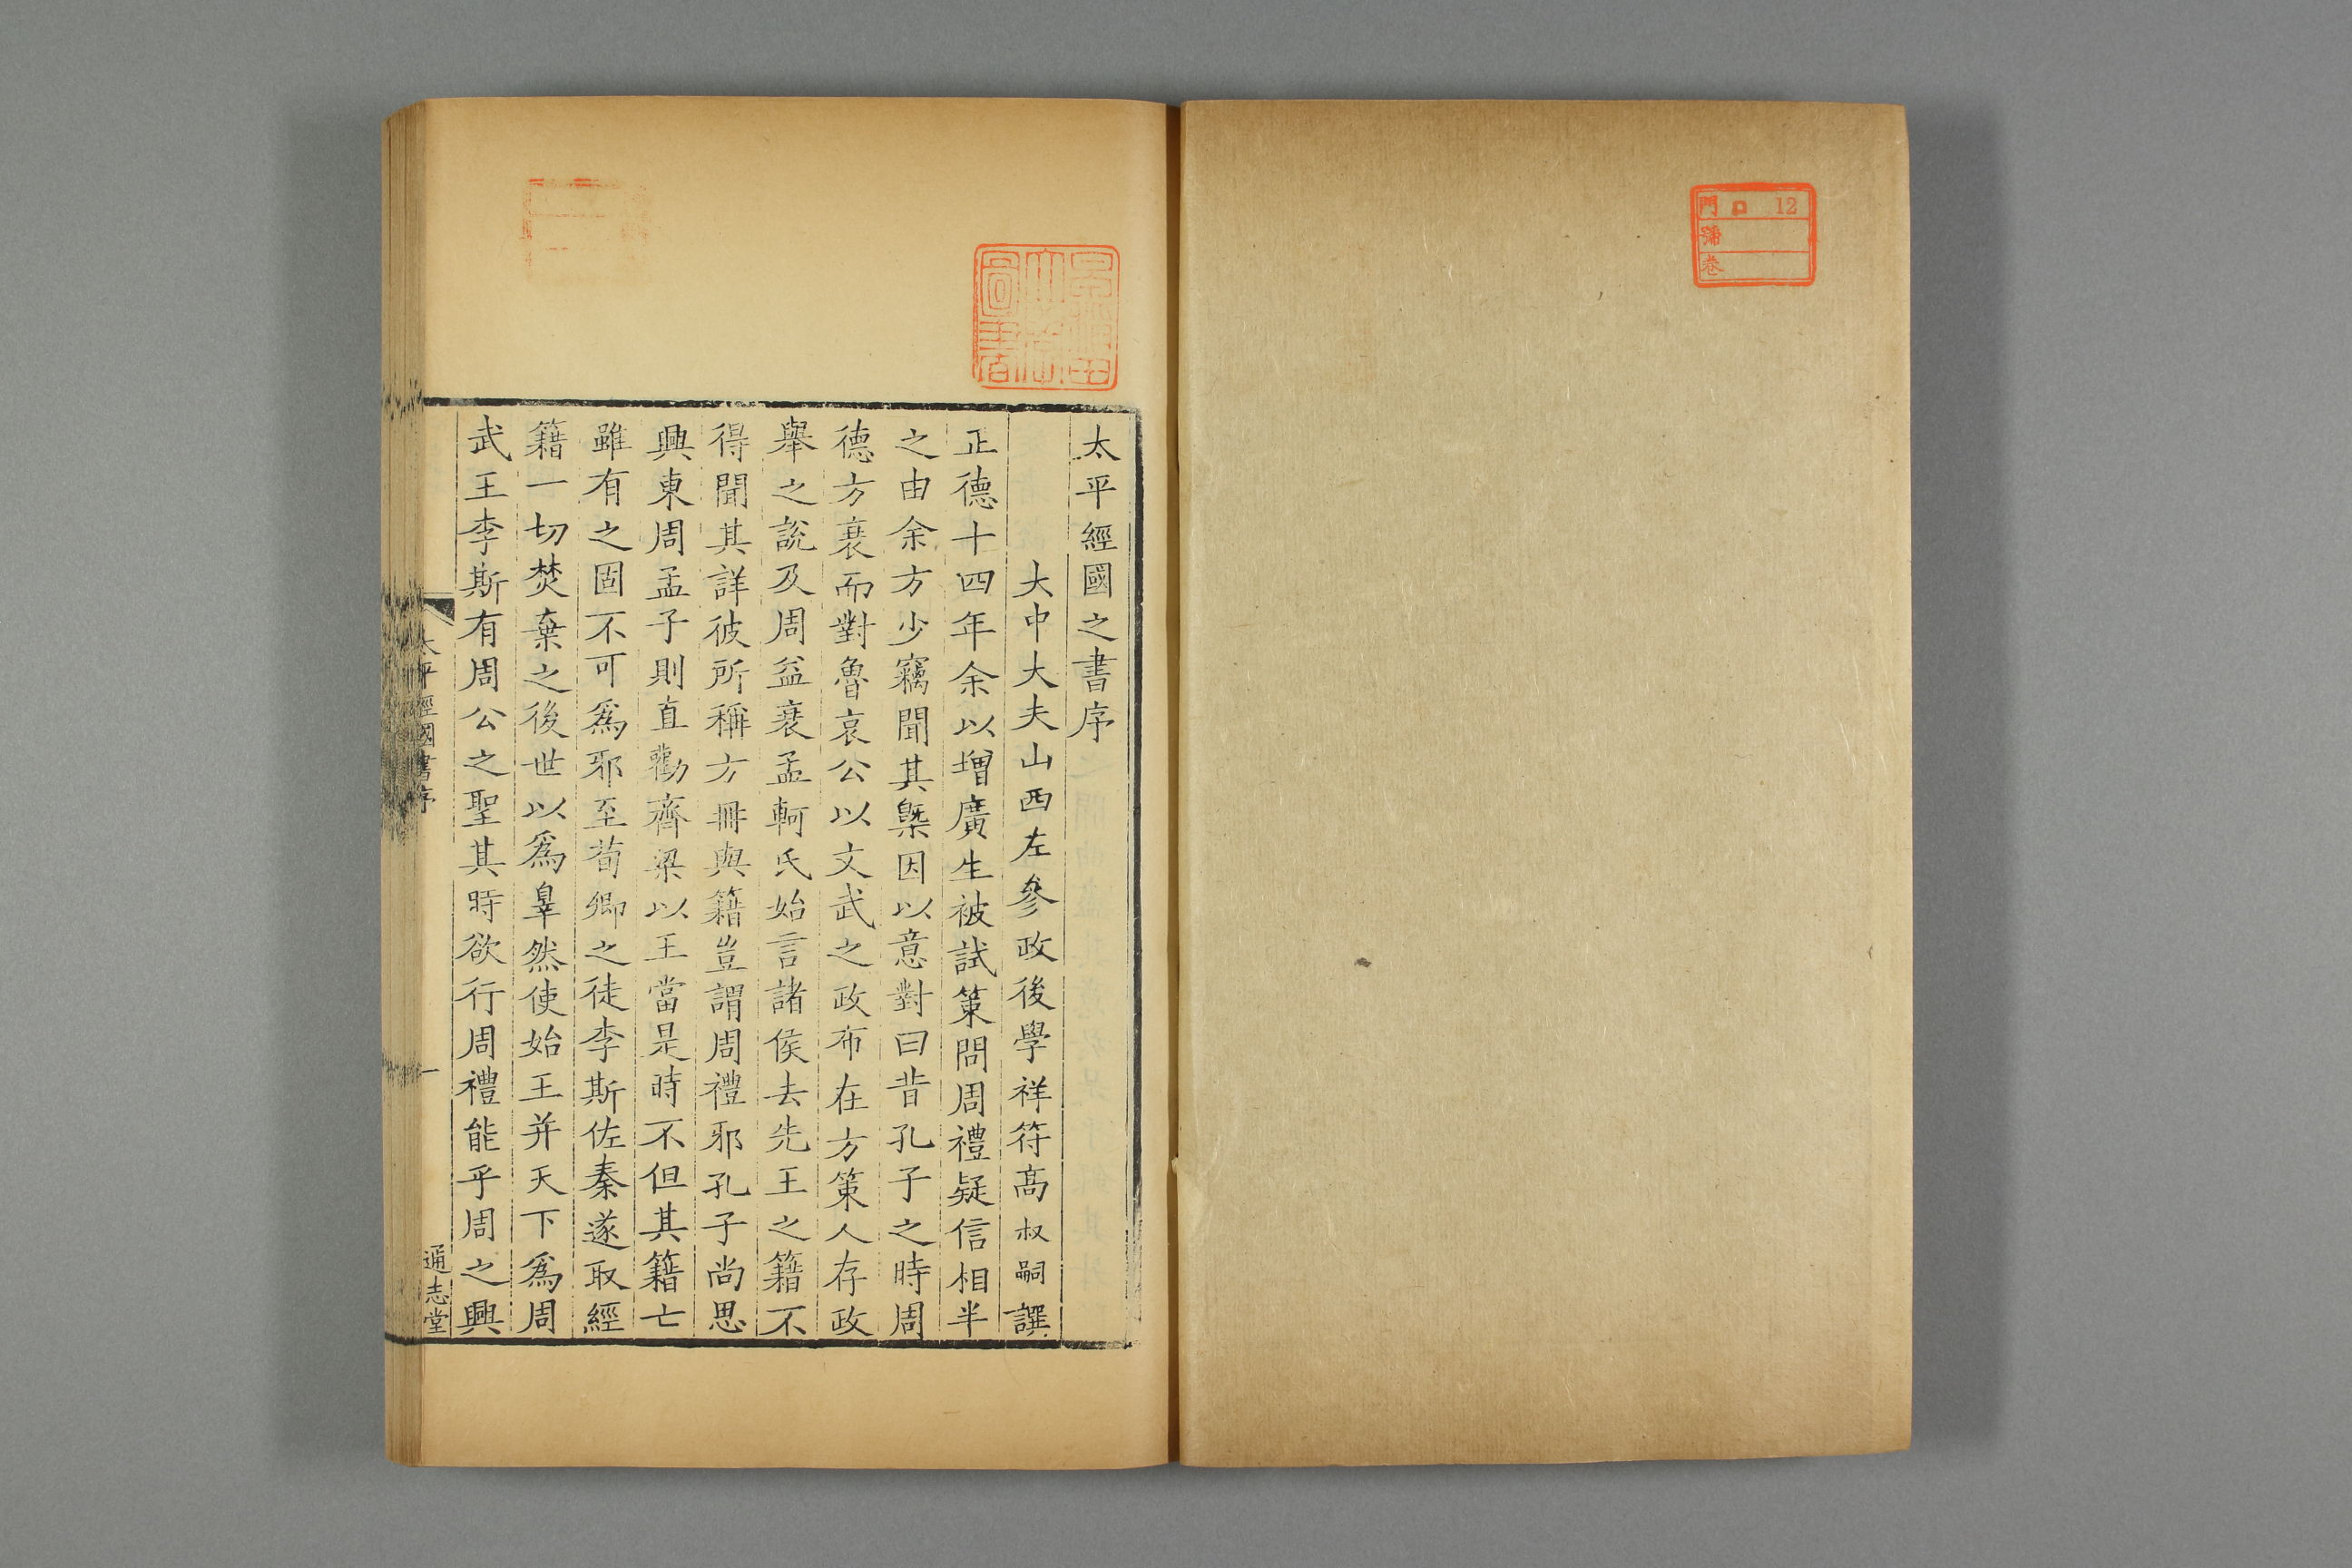 門 口 12
號
卷
太平經國之書序
大中大夫山西左參政後學祥符高叔嗣譔
正德十四年余以增廣生被試策問周禮疑信相半
之由余方少竊聞其槩因以意對曰昔孔子之時周
德方衰而對魯哀公以文武之政布在方策人存政
舉之說及周益衰孟軻氏始言諸侯去先王之籍不
得聞其詳彼所稱方冊與籍豈謂周禮邪孔子尚思
興東周孟子則直勸齊梁以王當是時不但其籍亡
雖有之固不可爲邪至荀卿之徒李斯佐秦遂取經
籍一切焚棄之後世以爲辠然使始王并天下爲周
武王李斯有周公之聖其時欲行周禮能乎周之興
太平經國書序 一 通志堂
圖書